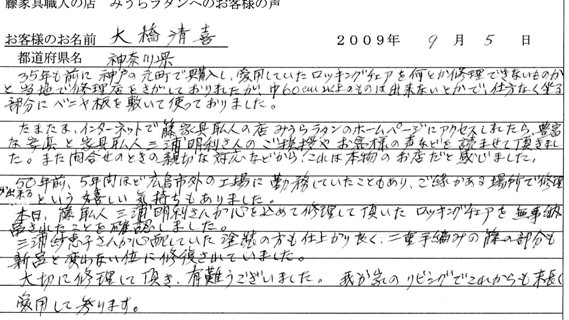 藤家具職人の店 みうらラタンへのお客様の声
お客様のお名前 大橋清喜 2009年 9月 5日
都道府県名 神奈川県
35年も前に神戸の元町で購入し、愛用していたロッキングチェアを何とか修理できないものか
と当地で修理店をさがしておりましたが、巾60cm以上のものは出来ないとかで、仕方なく坐る
部分にベニヤ板を敷いて使っておりました。
たまたま、インターネットで籐家具職人の店 みうらラタンのホームページにアクセスしましたら、豊富
な写真と家具職人三浦明利さんのご挨拶やお客様の声などを読ませて頂きま
した。また問合せのときの親切な対応などから、これは本物のお店だと感じました。
50年前、5年間ほど広島市外の工場に勤務していたこともあり、ご縁がある場所で修理
が出来るという嬉しい気持もありました。
本日、籐職人 三浦明利さんが心を込めて修理して頂いたロッキングチェアを無事納
品されたことを確認しました。
三浦 恵子さんが心配していた塗装の方も仕上がり良く、二重手編みの籐の部分も
新品と変わない位に修復されていました。
大切に修理して頂き、有難うございました。 我が家のリビングでこれからも末長く
愛用して参ります。